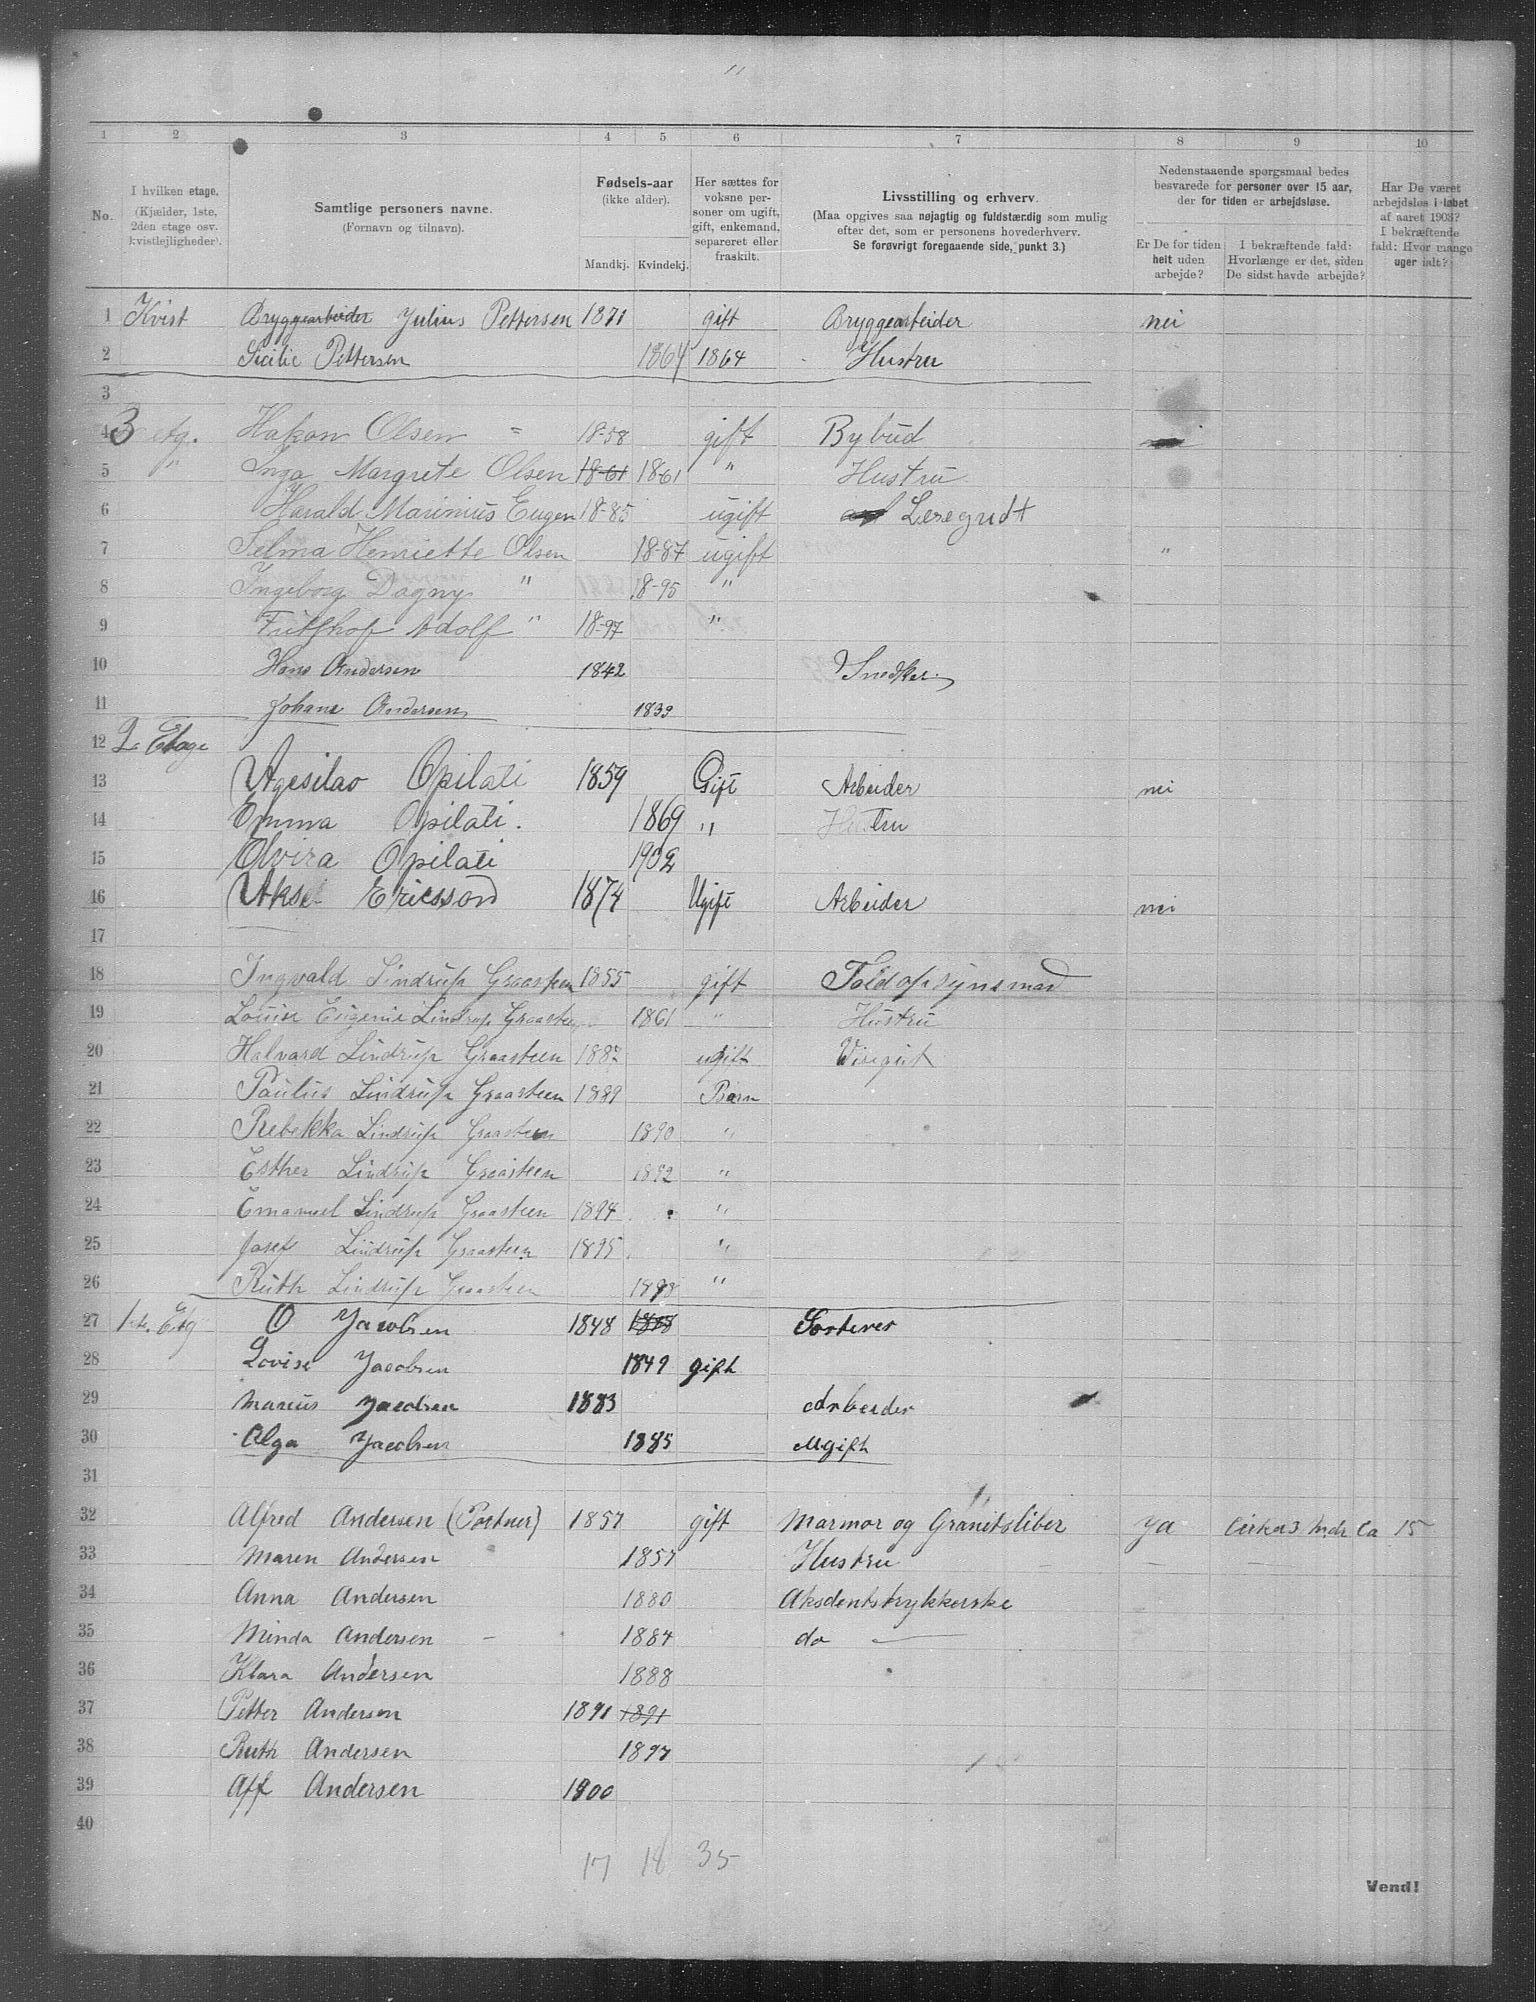 11
1 2 3 4 5 6 7 8 9 10
No.
I hvilken etage.
(Kjælder, 1ste,
2den etage osv.
kvistlejligheder).
Samtlige personers navne.
(Fornavn og tilnavn).
Fødsels-aar
(ikke alder).
Mandkj. Kvindekj.
Her sættes for
voksne per-
soner om ugift,
gift, enkemand,
separeret eller
fraskilt.
Livsstilling og erhverv.
(Maa opgives saa nøjagtig og fuldstændig som mulig
efter det, som er personens hovederhverv.
Se forøvrigt foregaaende side, punkt 3.)
Nedenstaaende spørgsmaal bedes
besvarede for personer over 15 aar,
der for tiden er arbejdsløse.
Er De for tiden
helt uden
arbejde?
I bekræftende fald:
Hvorlænge er det, siden
De sidst havde arbejde?
Har De været
arbejdsløs i løbet
af aaret 1903?
I bekræftende
fald: Hvor mange
uger ialt?
1 Kvist Bryggearbeider Julius Pettersen 1871 gift Bryggearbeider nei
2 Sicilie Pettersen 1864 1864 Hustru
3
4 3 etg. Hakon Olsen 18-58 gift Bybud
5 " Inga Margrete Olsen 18-61 1861 " Hustru
6 Harald Marinius Eugen 18-85 ugift Lesegudt
7 Selma Henriette Olsen 18-87 ugift "
8 Ingeborg Dagny " 18-95 "
9 Frithjhof Adolf " 18-97 "
10 Hans Andersen 1842 Snedker
11 Johane Andersen 1839
12 2. Etage
13 Agesilao Opilati 1859 Gift Arbeider nei
14 Emma Opilati. 1869 " Hustru
15 Elvira Opilati 1902
16 Aksel Ericsson 1874 Ugift Arbeider nei
17
18 Ingvald Lindrup Graasteen 1855 gift Toldopsynsmand
19 Louise Eugenie Lindrup Graasteen 1861 " Hustru
20 Halvard Lindrup Graasteen 1887 ugift Visegut
21 Paulus Lindrup Graasteen 1889 Barn
22 Rebekka Lindrup Graasteen 1890 "
23 Esther Lindrup Graasteen 1892 "
24 Emanuel Lindrup Graasteen 1894 "
25 Josef Lindrup Graasteen 1895 "
26 Ruth Lindrup Graasteen 1898 "
27 1ste. Etg O Jacobsen 1848 Sorterer
28 Lovise Jacobsen 1849 gift
29 Marius Jacobsen 1883 Arbeider
30 Olga Jacobsen 1885 Ugift
31
32 Alfred Andersen (Portner) 1857 gift Marmor og Granitsliber Ja Cirka 3 Mdr Ca 15
33 Maren Andersen 1857 Hustru
34 Anna Andersen 1880 Aksdentstrykkerske
35 Minda Andersen 1884 do
36 Klara Andersen 1888
37 Petter Andersen 1891 1891
38 Ruth Andersen 1897
39 Aff Andersen 1900
40
17 18 35
Vend!